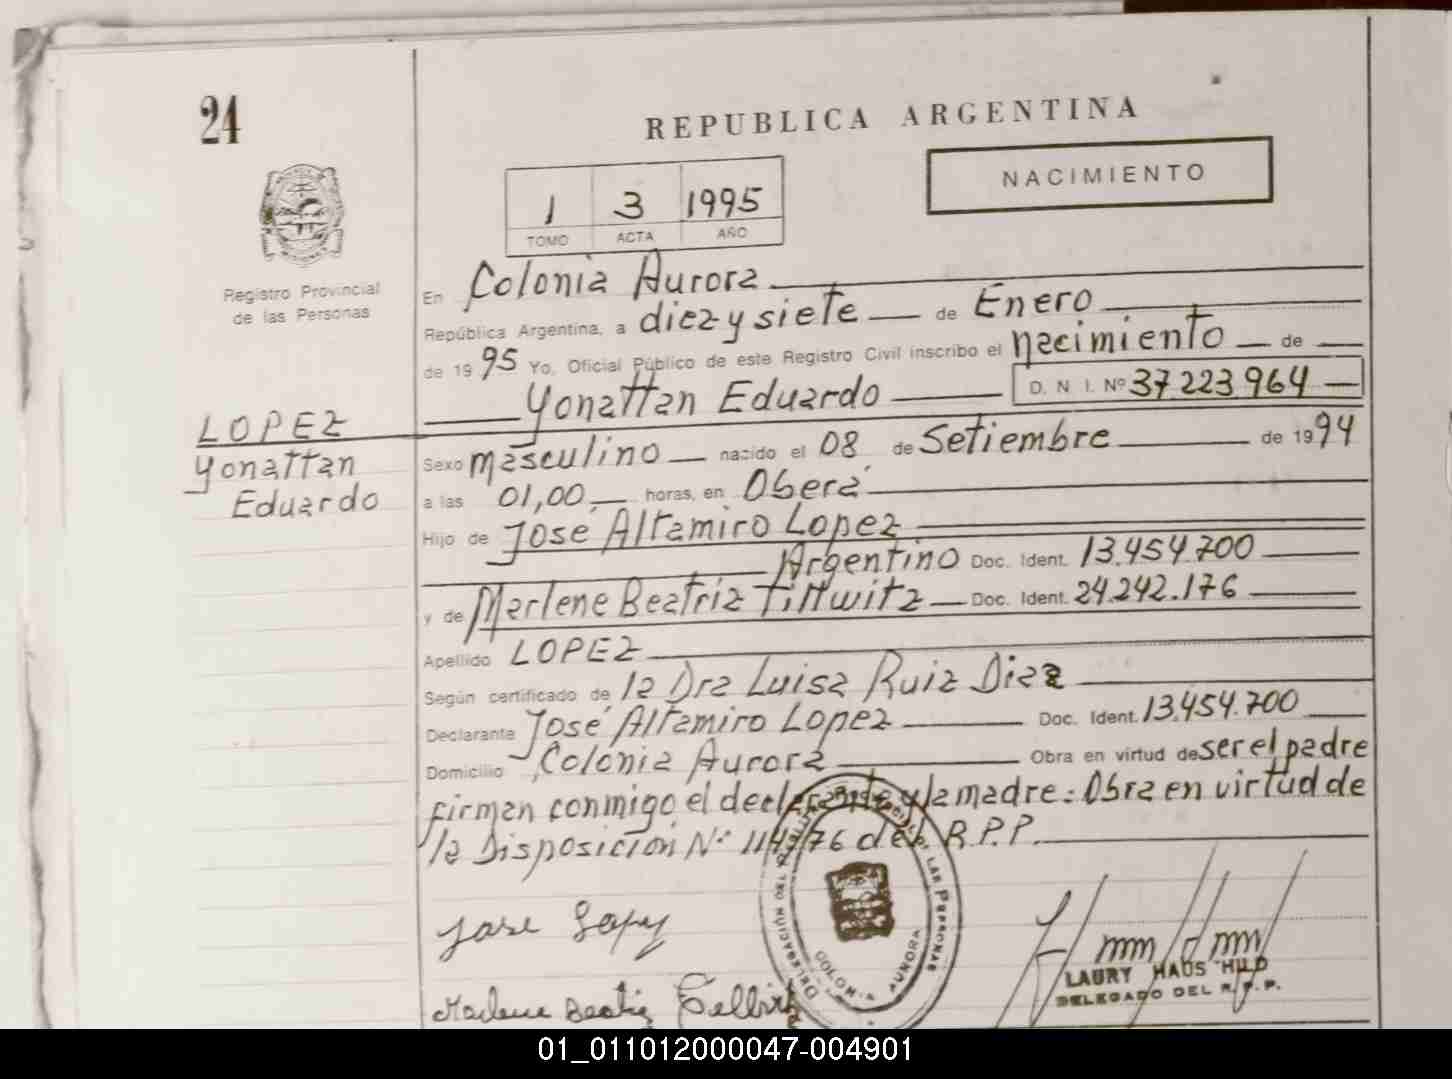 24
REPUBLICA ARGENTINA
NACIMIENTO
1 3 1995
TOMO ACTA AÑO
Registro Provincial
de las Personas
En Colonia Aurora
República Argentina, a diez y siete de Enero
de 1995 Yo, Oficial Público de este Registro Civil inscribo el nacimiento de
Yonattan Eduardo D. N. I. Nº 37.223.964
LOPEZ
Yonattan
Eduardo
Sexo masculino nacido el 08 de Setiembre de 1994
a las 01,00 horas, en Oberá
Hijo de José Altamiro Lopez
Argentino Doc. Ident. 13.454.700
y de Marlene Beatriz Tittwitz Doc. Ident. 24.242.176
Apellido LOPEZ
Según certificado de la Dra Luisa Ruiz Diaz
Declarante José Altamiro Lopez Doc. Ident. 13.454.700
Domicilio Colonia Aurora Obra en virtud de ser el padre
firman conmigo el declarante y la madre: Obra en virtud de
la Disposición Nº 114/76 del R.P.P.
Jose Lopez
Marlene Beatriz
DELEGACION DE LAS PERSONAS
COLONIA AURORA
LAURY HAUS HILD
DELEGADO DEL R.P.P.
01_011012000047-004901